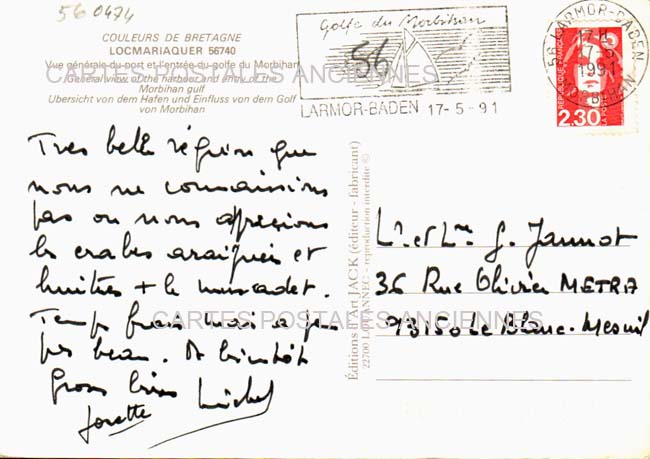 56 0474
COULEURS DE BRETAGNE
LOCMARIAQUER 56740
Vue générale du port et l'entrée du golfe du Morbihan
General view of the harbour and entry of the
Morbihan gulf
Übersicht von dem Hafen und Einfluss von dem Golf
von Morbihan
Golfe du Morbihan
56
LARMOR-BADEN 17-5-91
56 LARMOR-BADEN
17 H
17-5
1991
MORBIHAN
REPUBLIQUE FRANÇAISE
LA POSTE
2,30
CARTES POSTALES ANCIENNES
Très belle région que
nous ne connaissions
pas ou nous apprécions
les crabes araignées et
huitres + le muscadet.
Temps frais mais a peu
pres beau. A bientôt
Gros bises Michel
Josette
Editions d'Art JACK (éditeur - fabricant)
22700 LOUANNEC - reproduction interdite ©
Mr et Mme G. Jannot
36 Rue Olivier METRA
93150 Le Blanc-Mesnil
CARTES POSTALES ANCIENNES